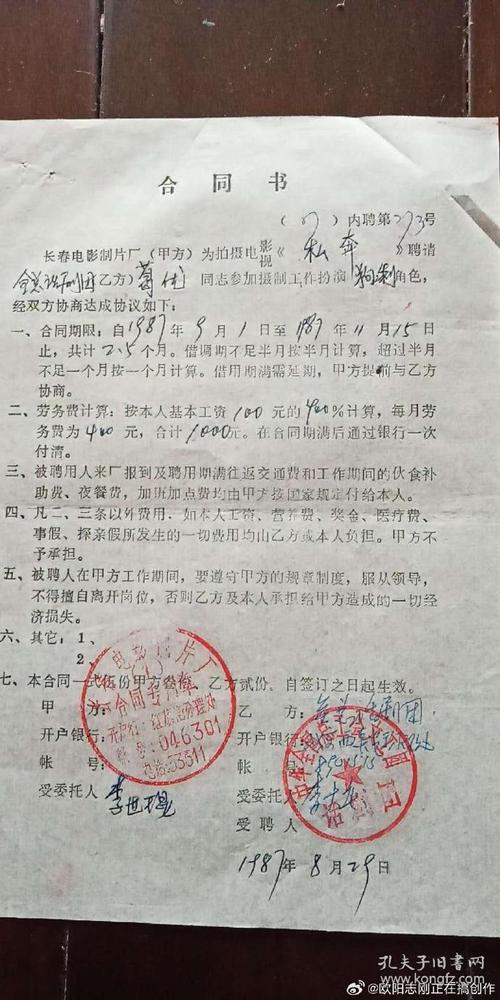 合同书
（87）内聘第273号
长春电影制片厂（甲方）为拍摄电影视《私奔》聘请
全总话剧团（乙方）葛优同志参加摄制工作扮演角色，
经双方协商达成协议如下：
一、合同期限：自1987年9月1日至1987年11月15日
止，共计2.5个月。借调期不足半月按半月计算，超过半月
不足一个月按一个月计算。借用期满需延期，甲方提前与乙方
协商。
二、劳务费计算：按本人基本工资100元的400%计算，每月劳
务费为400元，合计1000元。在合同期满后通过银行一次
付清。
三、被聘用人来厂报到及聘用期满往返交通费和工作期间的伙食补
助费、夜餐费，加班加点费均由甲方按国家规定付给本人。
四、凡二、三条以外费用，如本人工资、营养费、奖金、医疗费、
事假、探亲假所发生的一切费用均由乙方或本人负担。甲方不
予承担。
五、被聘人在甲方工作期间，要遵守甲方的规章制度，服从领导，
不得擅自离开岗位，否则乙方及本人承担给甲方造成的一切经
济损失。
六、其它：1、
2、
七、本合同一式伍份甲方叁份，乙方贰份，自签订之日起生效。
甲方：
开户银行：
帐号：
受委托人
乙方：全总话剧团
开户银行：
帐号：
受委托人
受聘人
1987年8月29日
电影制片厂
合同专用章
046301
电话53311
话剧团
孔夫子旧书网
kongfz.com
@欧阳志刚正在搞创作